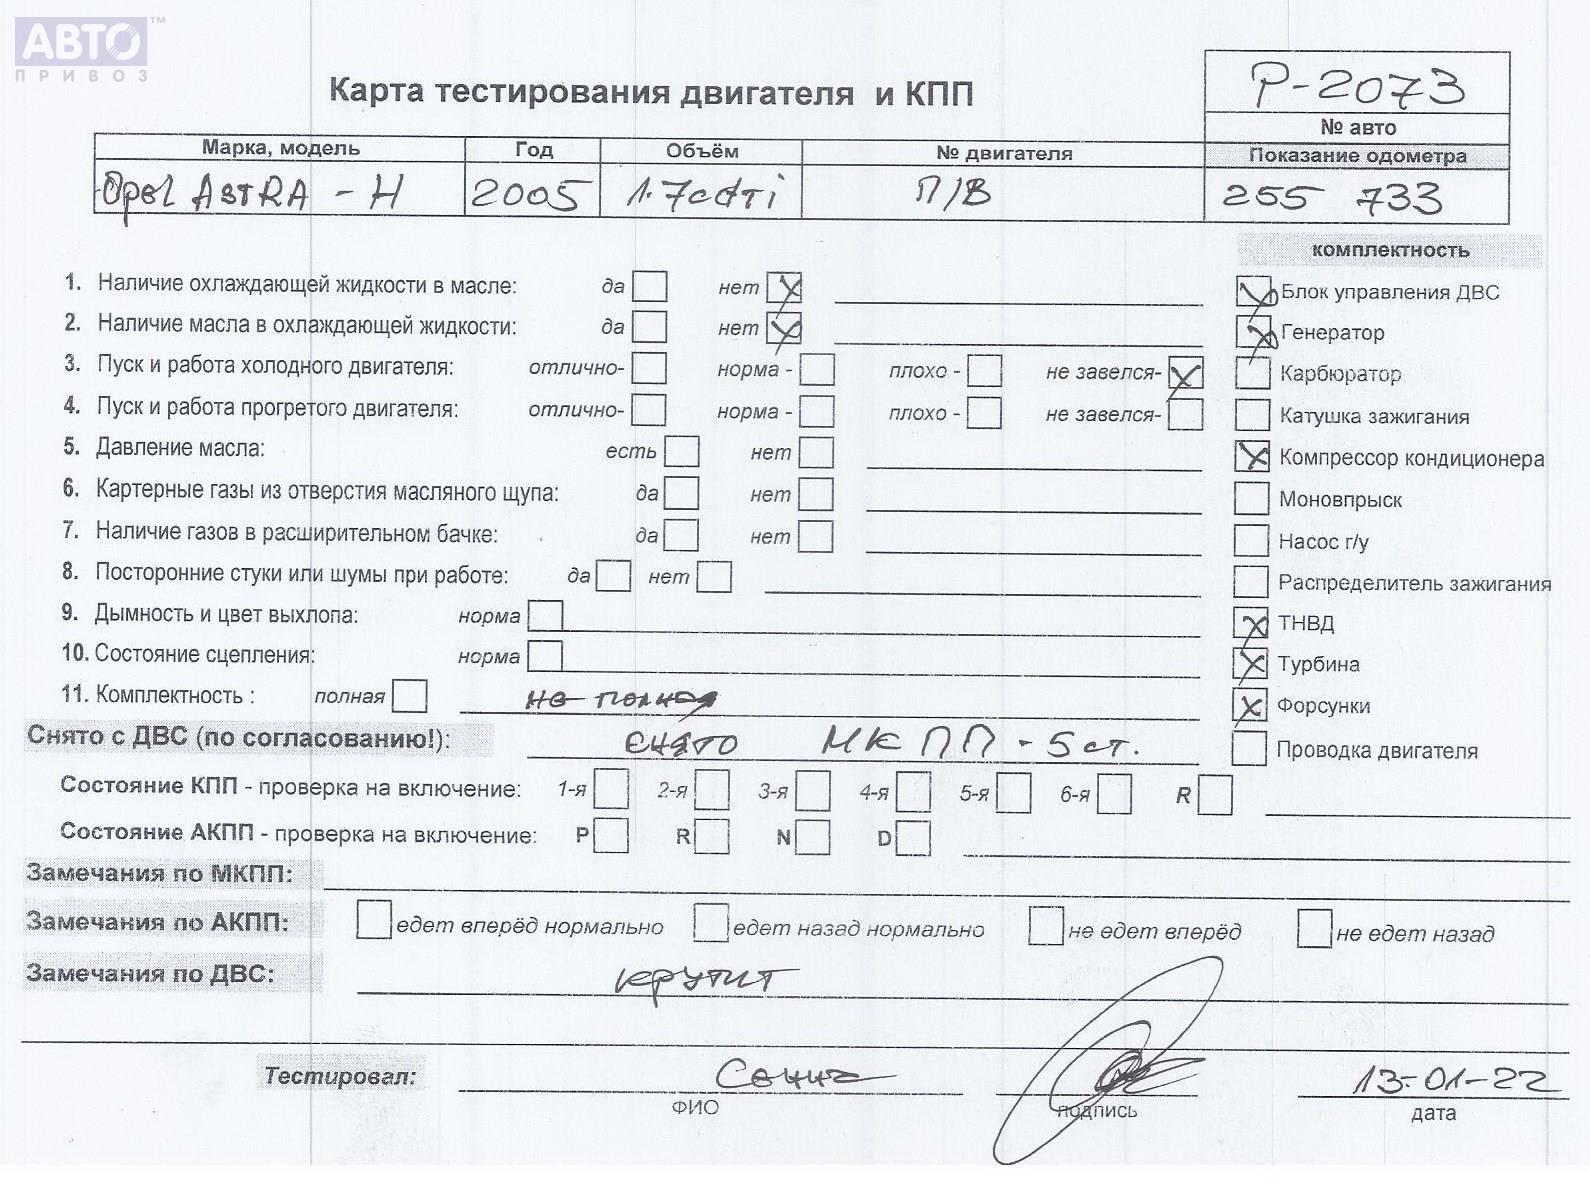 АВТО™
ПРИВОЗ
Карта тестирования двигателя и КПП
P-2073
№ авто
Марка, модель Год Объём № двигателя Показание одометра
Opel ASTRA - H 2005 1.7cdti П/В 255 733
комплектность
1. Наличие охлаждающей жидкости в масле: да нет
Блок управления ДВС
2. Наличие масла в охлаждающей жидкости: да нет
Генератор
3. Пуск и работа холодного двигателя: отлично- норма - плохо - не завелся-
Карбюратор
4. Пуск и работа прогретого двигателя: отлично- норма - плохо - не завелся-
Катушка зажигания
5. Давление масла: есть нет
Компрессор кондиционера
6. Картерные газы из отверстия масляного щупа: да нет
Моновпрыск
7. Наличие газов в расширительном бачке: да нет
Насос г/у
8. Посторонние стуки или шумы при работе: да нет
Распределитель зажигания
9. Дымность и цвет выхлопа: норма
ТНВД
10. Состояние сцепления: норма
Турбина
11. Комплектность : полная не полная
Форсунки
Снято с ДВС (по согласованию!): снято МКПП - 5 ст.
Проводка двигателя
Состояние КПП - проверка на включение: 1-я 2-я 3-я 4-я 5-я 6-я R
Состояние АКПП - проверка на включение: P R N D
Замечания по МКПП:
Замечания по АКПП: едет вперёд нормально едет назад нормально не едет вперёд не едет назад
Замечания по ДВС: крутит
Тестировал: 13-01-22
ФИО подпись дата